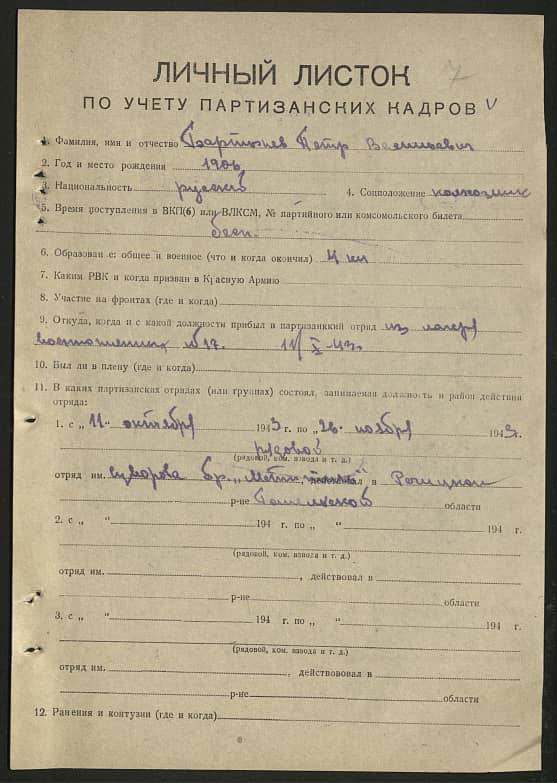 7
ЛИЧНЫЙ ЛИСТОК
ПО УЧЕТУ ПАРТИЗАНСКИХ КАДРОВ V
1. Фамилия, имя и отчество Петр Васильевич
2. Год и место рождения 1906
3. Национальность русский 4. Соцположение колхозник
5. Время поступления в ВКП(б) или ВЛКСМ, № партийного или комсомольского билета
бесп.
6. Образование: общее и военное (что и когда окончил) 4 кл
7. Каким РВК и когда призван в Красную Армию
8. Участие на фронтах (где и когда)
9. Откуда, когда и с какой должности прибыл в партизанккий отряд из лагеря
военнопленных №17. 11/X-43г.
10. Был ли в плену (где и когда)
11. В каких партизанских отрядах (или группах) состоял, занимаемая должность и район действия
отряда:
1. с „11" октября 1943 г. по „26" ноября 1943 г.
рядовой
(рядовой, ком. взвода и т. д.)
отряд им. Суворова бр. действовал в Речицком
р-не Гомельской области
2. с „ " 194 г. по „ " 194 г.
(рядовой, ком. взвода и т. д.)
отряд им. , действовал в
р-не области
3. с „ " 194 г. по „ " 194 г.
(рядовой, ком. взвода и т. д.)
отряд им. , действовал в
р-не области
12. Ранения и контузии (где и когда)